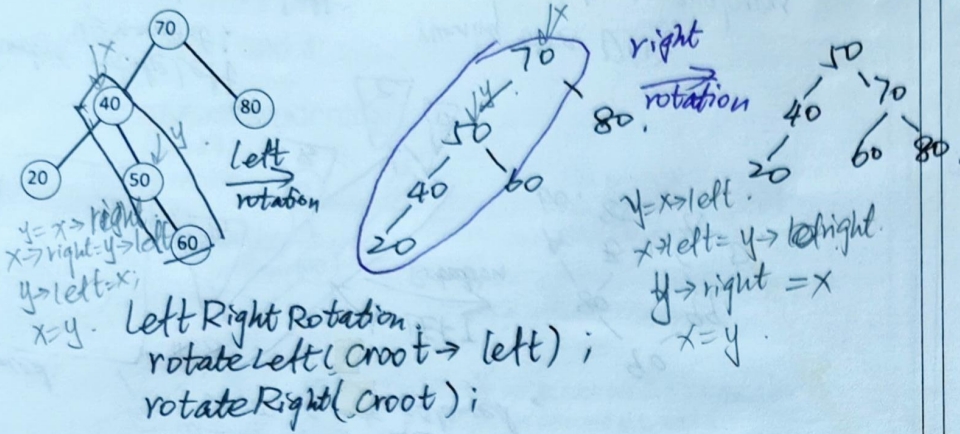 70
x
40
80
y
20
50
60
y=x→right
x→right=y→left
y→left=x;
x=y.
left
rotation
x
70
y
50
80.
40
60
20
right
rotation
50
40
70
20
60
80
y=x→left.
x→left=y→right.
y→right=x
x=y.
Left Right Rotation.
rotateLeft(croot→left);
rotateRight(croot);